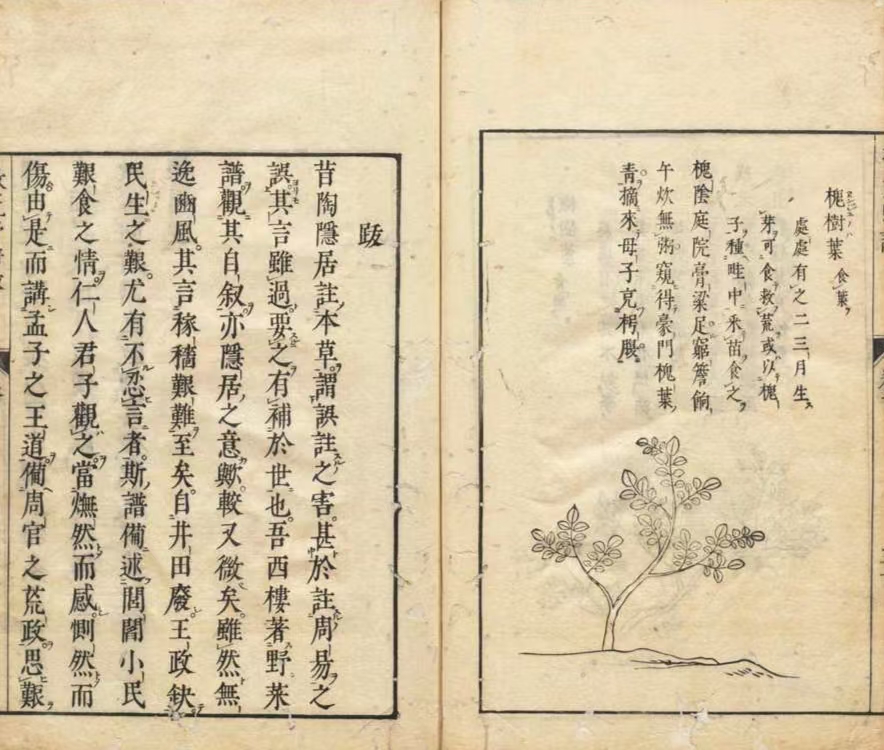 槐樹葉食葉
處處有之二三月生
芽可食救荒或以槐
子種畦中采苗食之
槐陰庭院膏粱足窮簷餉
午炊無粥窺得豪門槐葉
青摘來母子克楞腹
跋
昔陶隱居註本草謂誤註之害甚於註周易之
誤其言雖過要之有補於世也吾西樓著野菜
譜觀其自叙亦隱居之意歟較又微矣雖然無
逸豳風其言稼穡艱難至矣自井田廢王政缺
民生之艱尤有不忍言者斯譜備述閭閻小民
艱食之情仁人君子觀之當憮然而感惻然而
傷由是而講孟子之王道備周官之荒政思艱